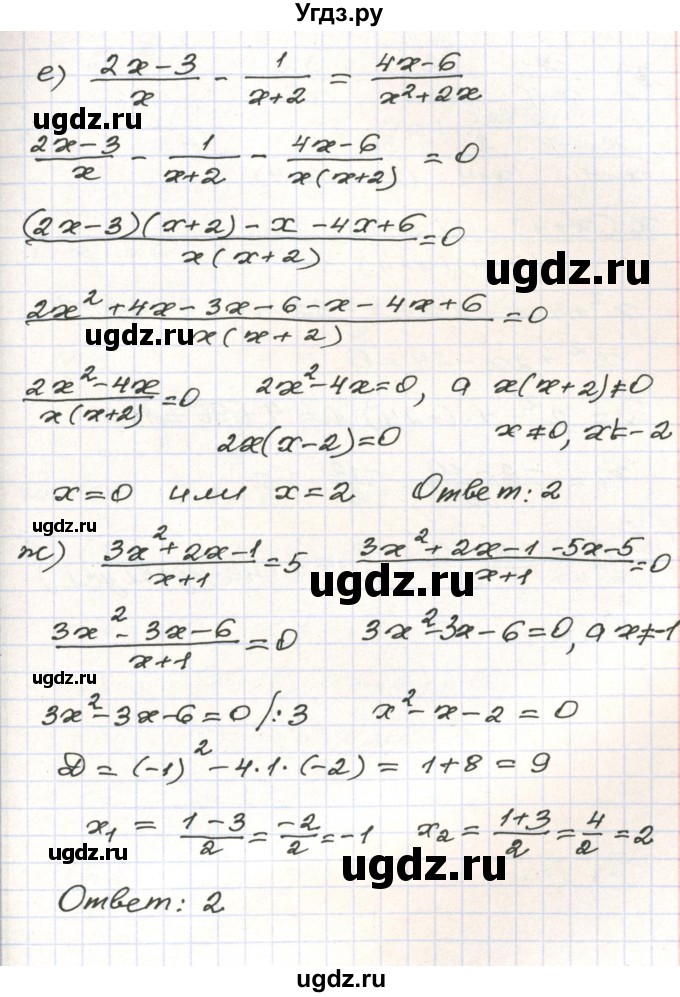 Угдз.ру
е) (2x-3)/x - 1/(x+2) = (4x-6)/(x²+2x)
ugdz.ru
(2x-3)/x - 1/(x+2) - (4x-6)/(x(x+2)) = 0
((2x-3)(x+2) - x - 4x+6)/(x(x+2)) = 0
ugdz.ru
(2x²+4x-3x-6-x-4x+6)/(x(x+2)) = 0
ugdz.ru
(2x²-4x)/(x(x+2)) = 0   2x²-4x=0, а x(x+2)≠0
2x(x-2)=0   x≠0, x≠-2
x=0 или x=2   Ответ: 2
ugdz.ru
ж) (3x²+2x-1)/(x+1) = 5   (3x²+2x-1-5x-5)/(x+1) = 0
ugdz.ru
(3x²-3x-6)/(x+1) = 0   3x²-3x-6=0, а x≠-1
ugdz.ru
3x²-3x-6=0 /:3   x²-x-2=0
D = (-1)²-4·1·(-2) = 1+8 = 9
x₁ = (1-3)/2 = -2/2 = -1   x₂ = (1+3)/2 = 4/2 = 2
ugdz.ru
ugdz.ru
Ответ: 2
ugdz.ru